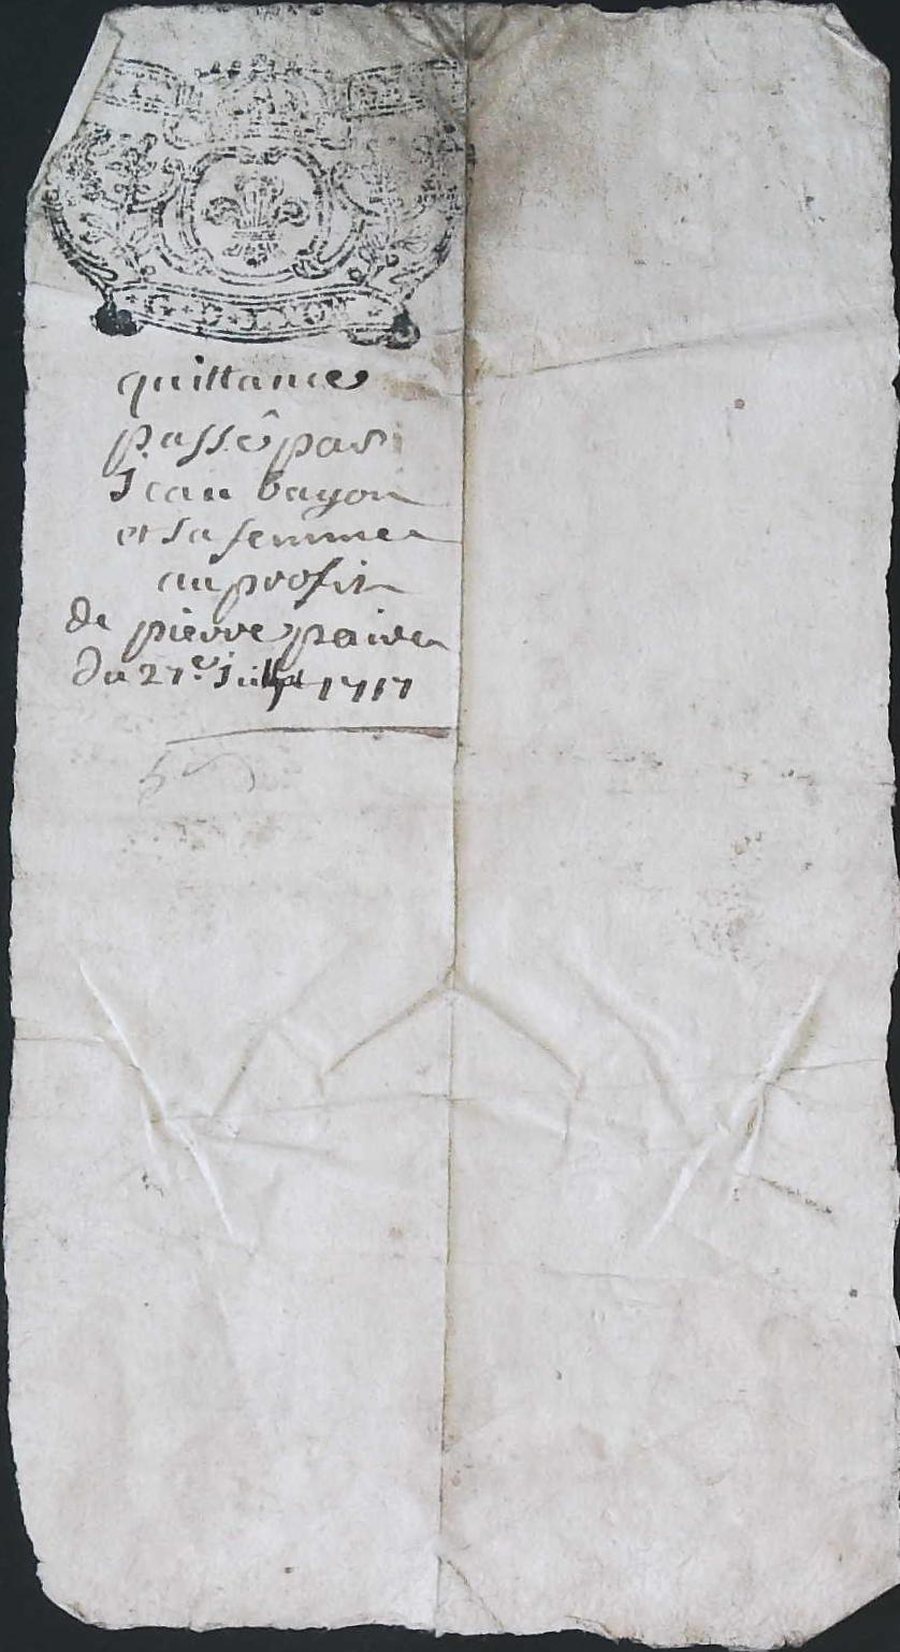 quittance
passé par
Jean bayon
et sa femme
au profit
de pierre paire
du 27e Juillet 1717